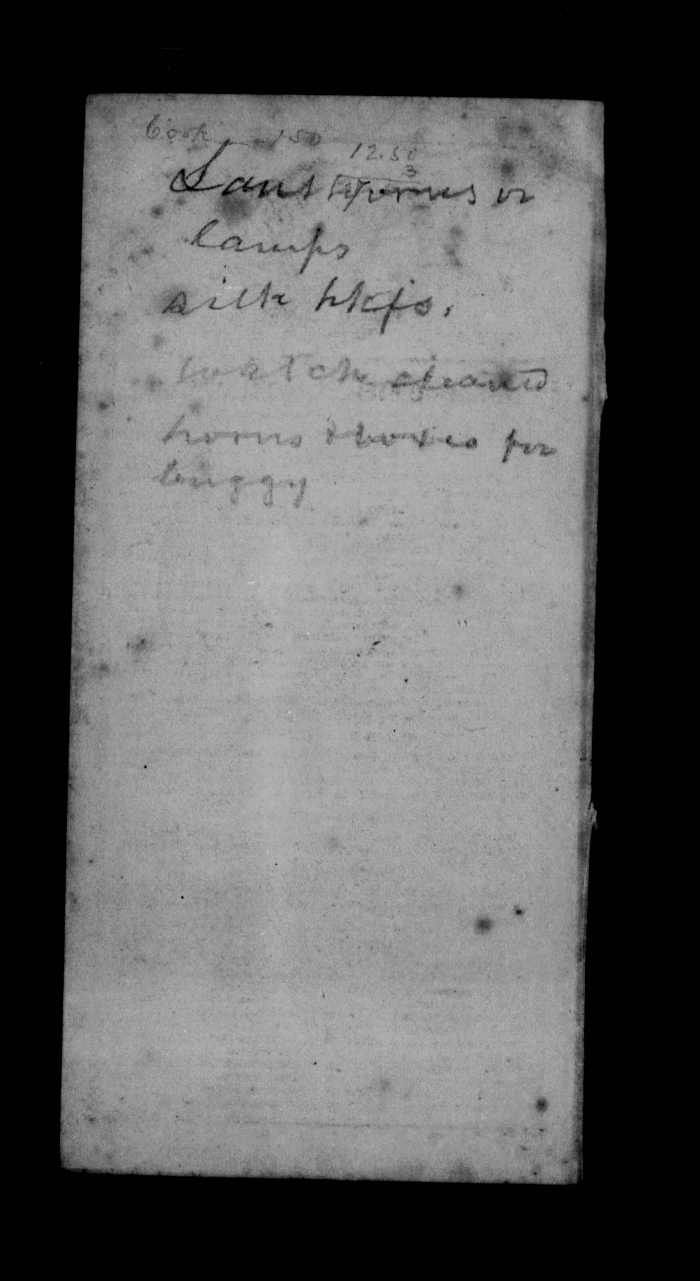 book 150
12.50
3
Lanthorns or
lamps
silk hkfs.
watch cleaned
horns & boxes for
buggy